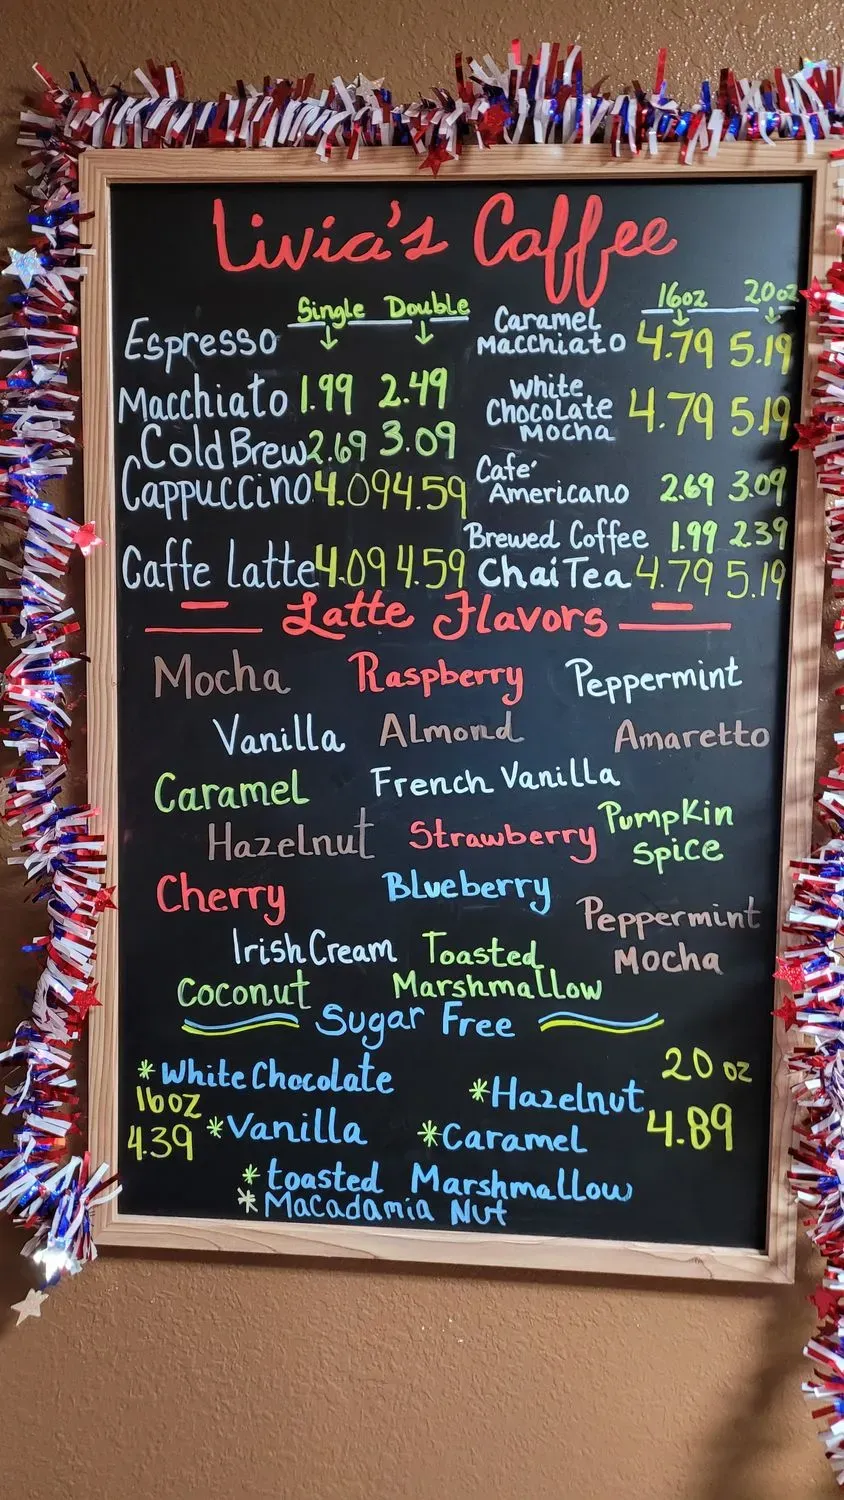 Livia's Coffee
Single Double
Espresso
Macchiato 1.99 2.49
Cold Brew 2.69 3.09
Cappuccino 4.09 4.59
Caffe Latte 4.09 4.59
16oz 20oz
Caramel
Macchiato 4.79 5.19
White
Chocolate 4.79 5.19
Mocha
Cafe'
Americano 2.69 3.09
Brewed Coffee 1.99 2.39
Chai Tea 4.79 5.19
Latte Flavors
Mocha Raspberry Peppermint
Vanilla Almond Amaretto
Caramel French Vanilla
Hazelnut Strawberry Pumpkin
Spice
Cherry Blueberry
Peppermint
Mocha
Irish Cream Toasted
Marshmallow
Coconut
Sugar Free
*White Chocolate *Hazelnut 20 oz
4.89
16oz
4.39
*Vanilla *Caramel
*toasted Marshmallow
*Macadamia Nut